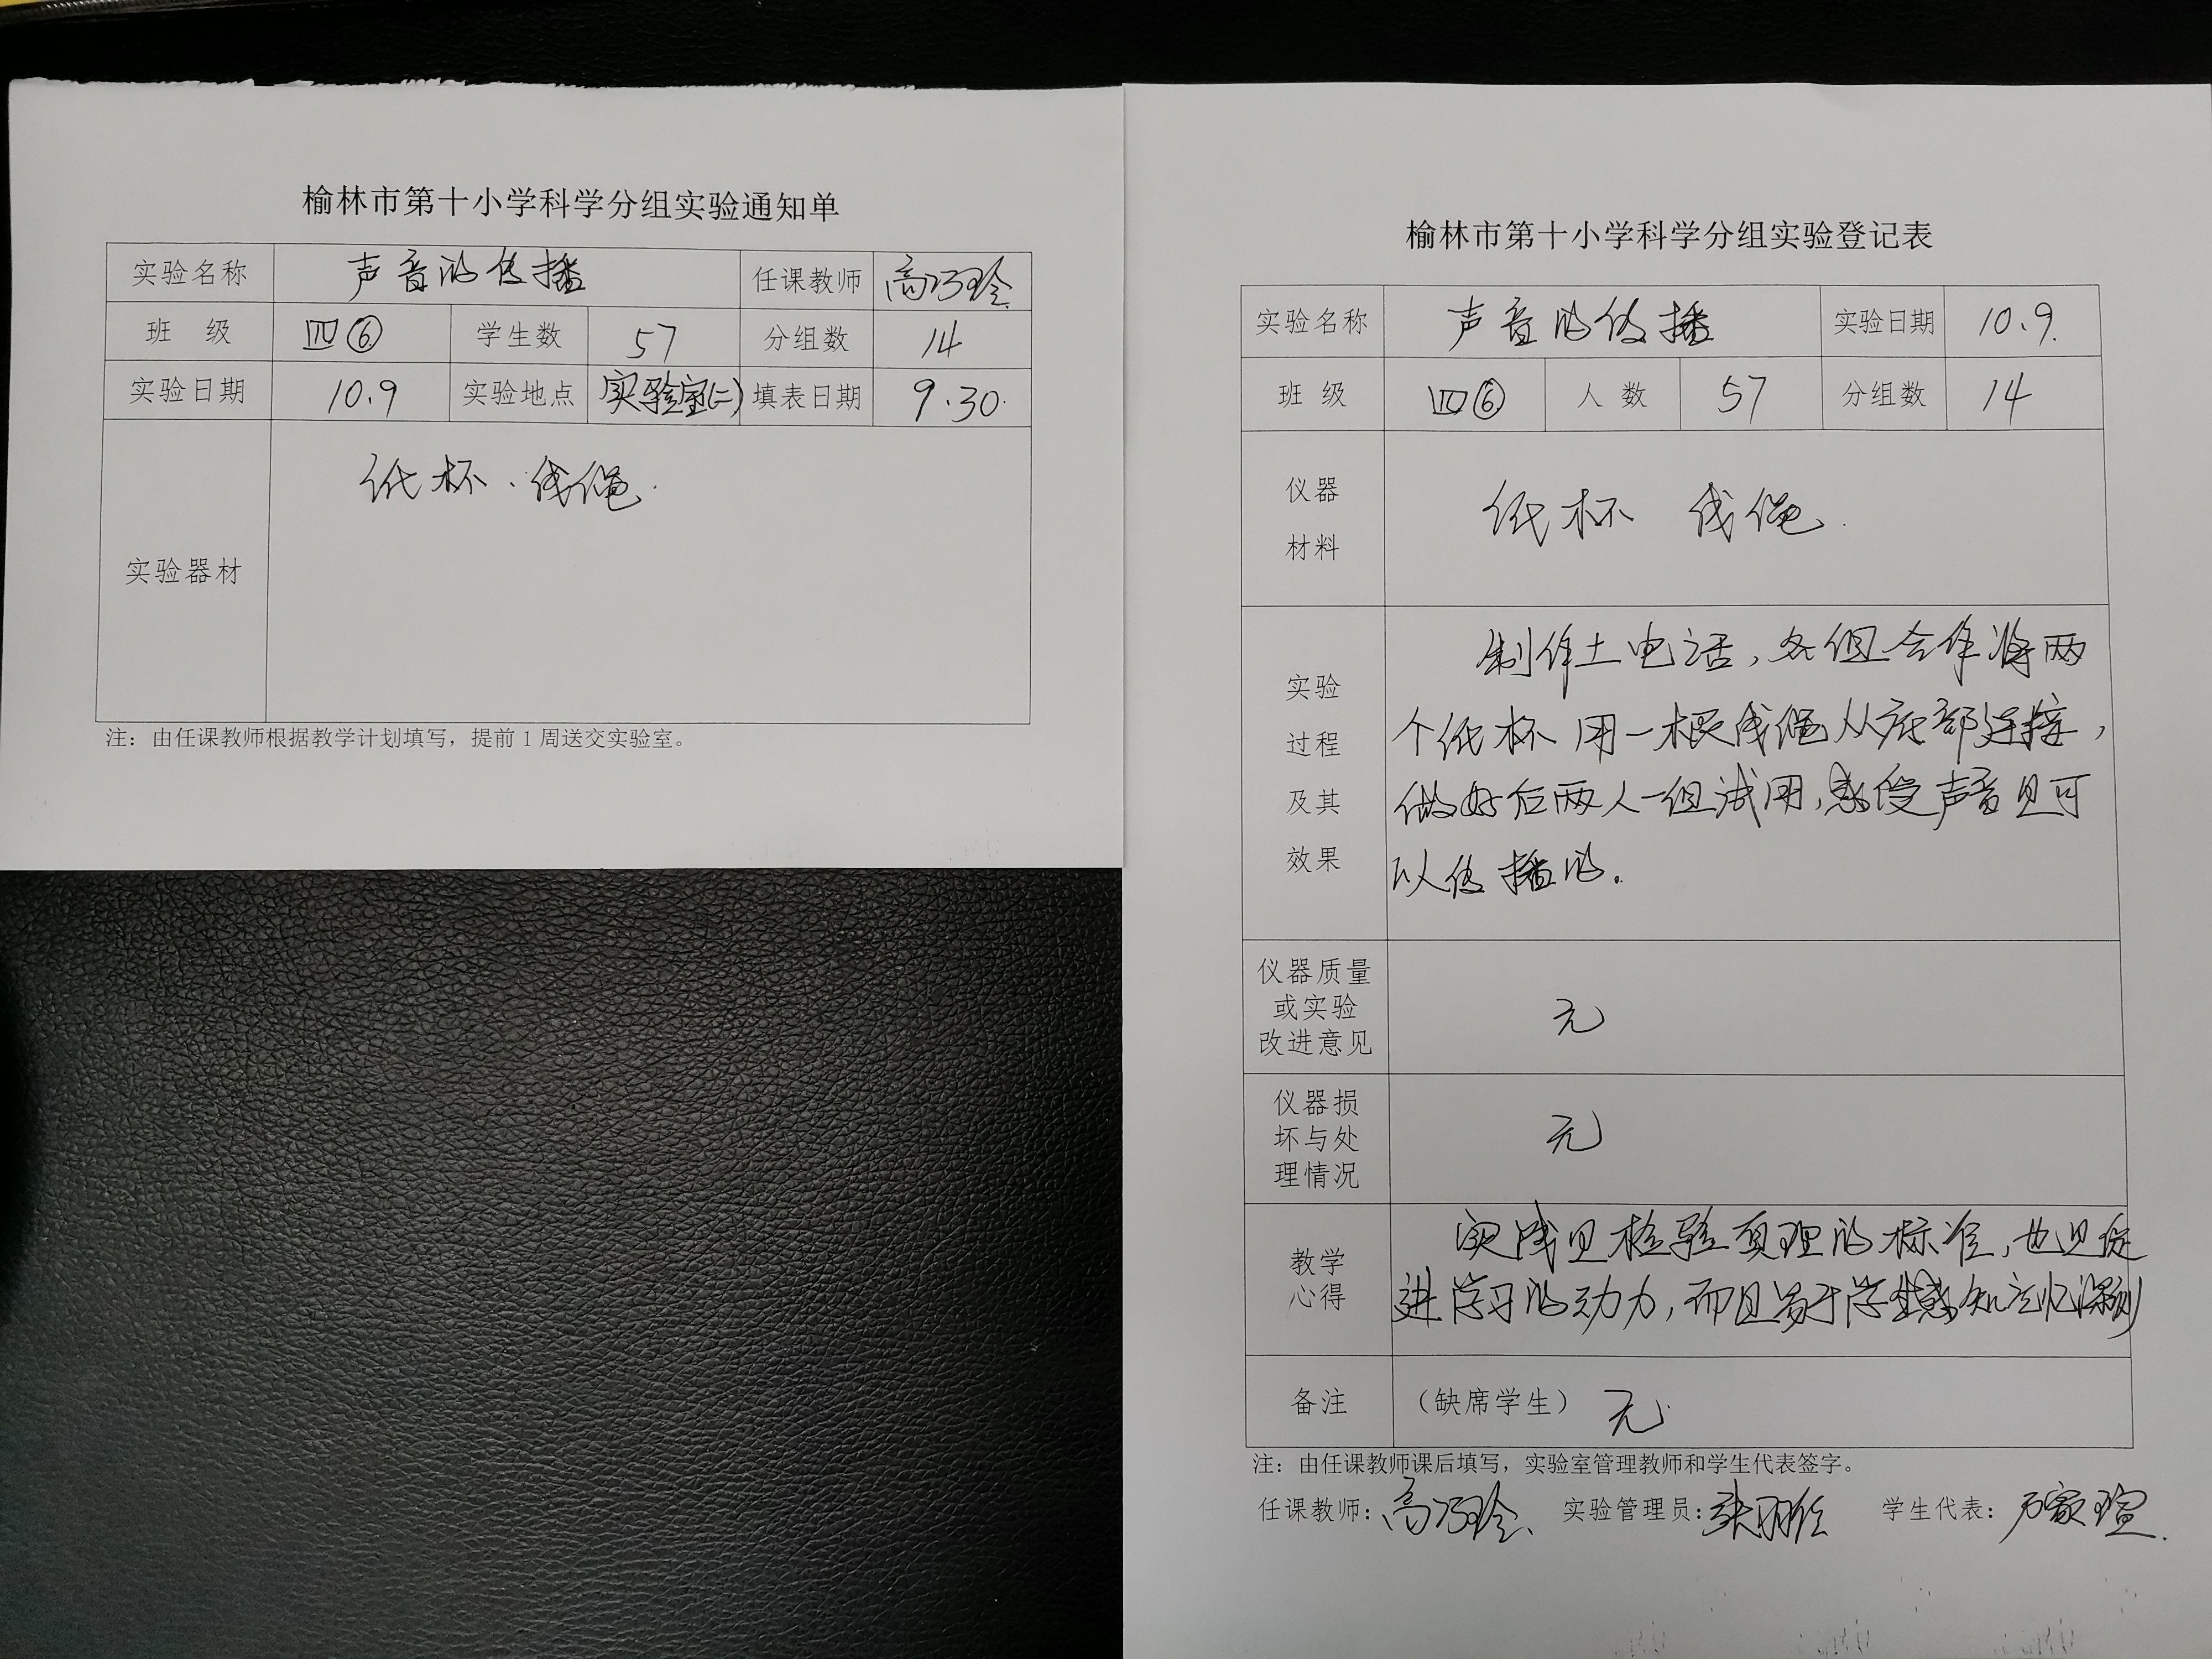 榆林市第十小学科学分组实验通知单
实验名称 声音的传播 任课教师 高巧玲
班 级 四⑥ 学生数 57 分组数 14
实验日期 10.9 实验地点 实验室(二) 填表日期 9.30.
实验器材 纸杯、线绳.
注：由任课教师根据教学计划填写，提前1周送交实验室。
榆林市第十小学科学分组实验登记表
实验名称 声音的传播 实验日期 10.9.
班 级 四⑥ 人 数 57 分组数 14
仪器
材料
纸杯 线绳.
实验
过程
及其
效果
制作土电话，各组合作将两
个纸杯用一根线绳从底部连接，
做好后两人一组试用，感受声音是可
以传播的。
仪器质量
或实验
改进意见
无
仪器损
坏与处
理情况
无
教学
心得
实践是检验真理的标准，也是促
进学习的动力，而且易于学生感知记忆深刻
备注 （缺席学生） 无.
注：由任课教师课后填写，实验室管理教师和学生代表签字。
任课教师：高巧玲 实验管理员： 学生代表：